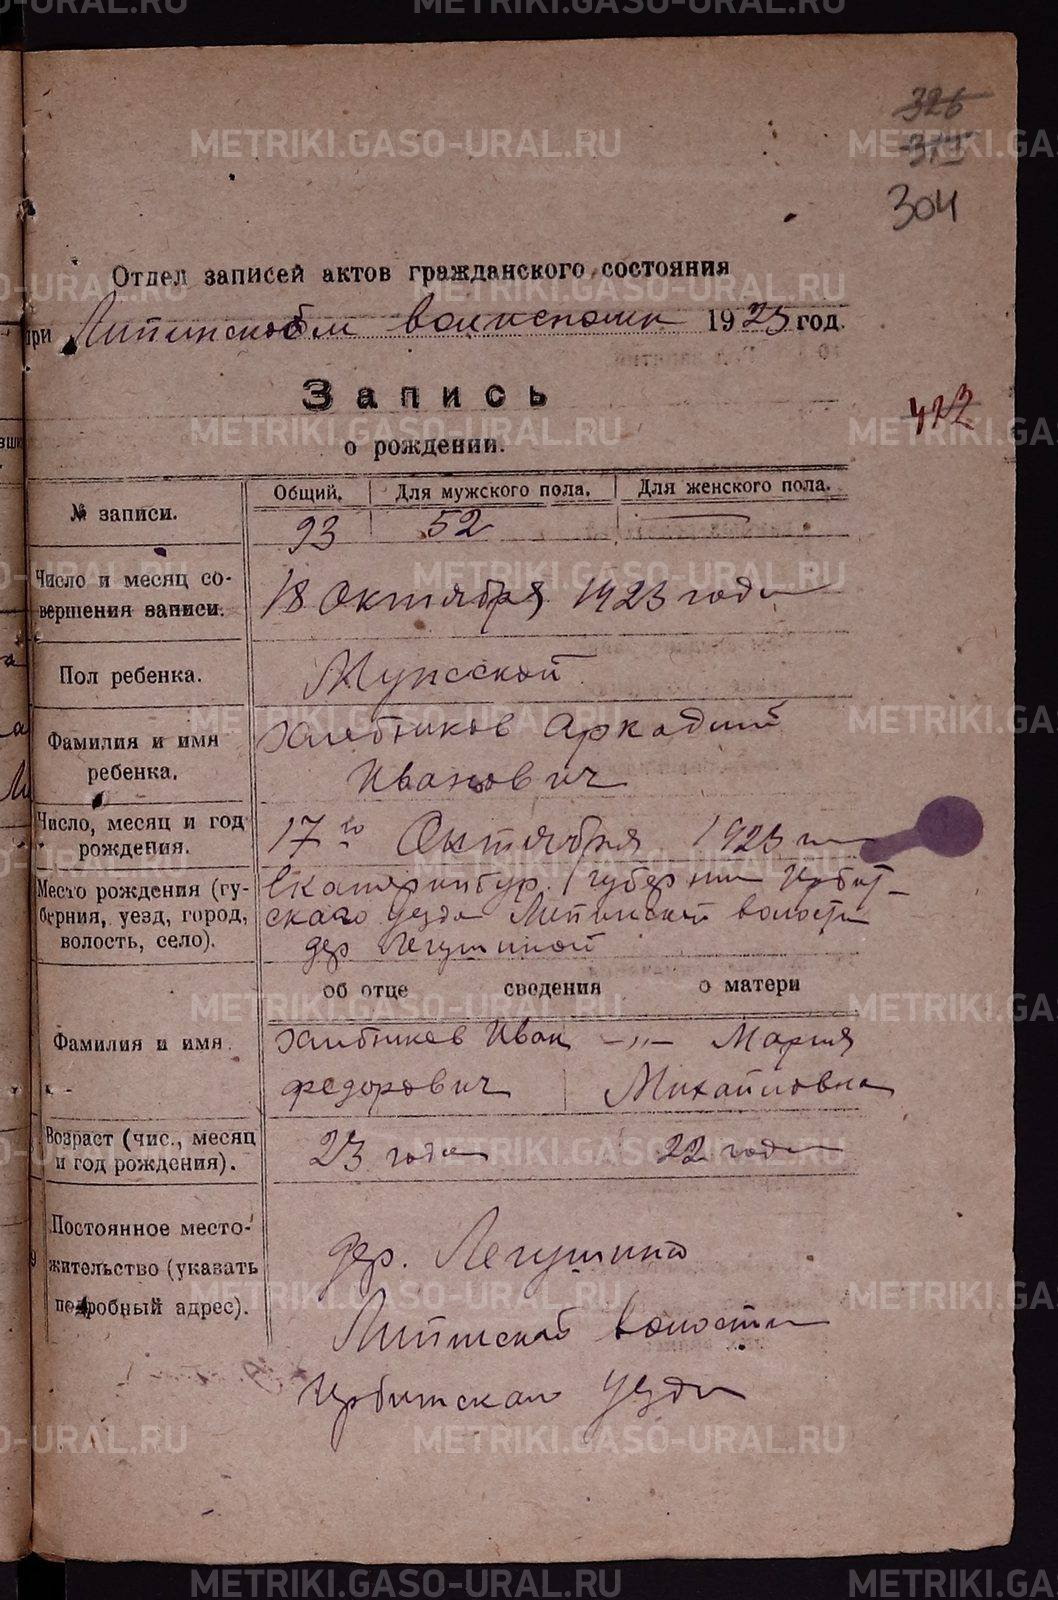 326
304
Отдел записей актов гражданского состояния
при Липинском волисполк 1923 год.
Запись
422
о рождении.
№ записи. Общий. Для мужского пола. Для женского пола.
93 52 —
Число и месяц совершения записи. 18 Октября 1923 года
Пол ребенка. Мужской
Фамилия и имя ребенка. Хлебников Аркадий
Иванович
Число, месяц и год рождения. 17го Октября 1923 г
Место рождения (губерния, уезд, город, волость, село). Екатеринбур. губернии Ирбит-
скаго уезда Липинской волости
дер Легушиной
об отце сведения о матери
Фамилия и имя. Хлебников Иван —„— Мария
Федорович Михайловна
Возраст (чис., месяц и год рождения). 23 года 22 года
Постоянное местожительство (указать подробный адрес). дер. Легушина
Липинской волости
Ирбитскаго уезда
METRIKI.GASO-URAL.RU